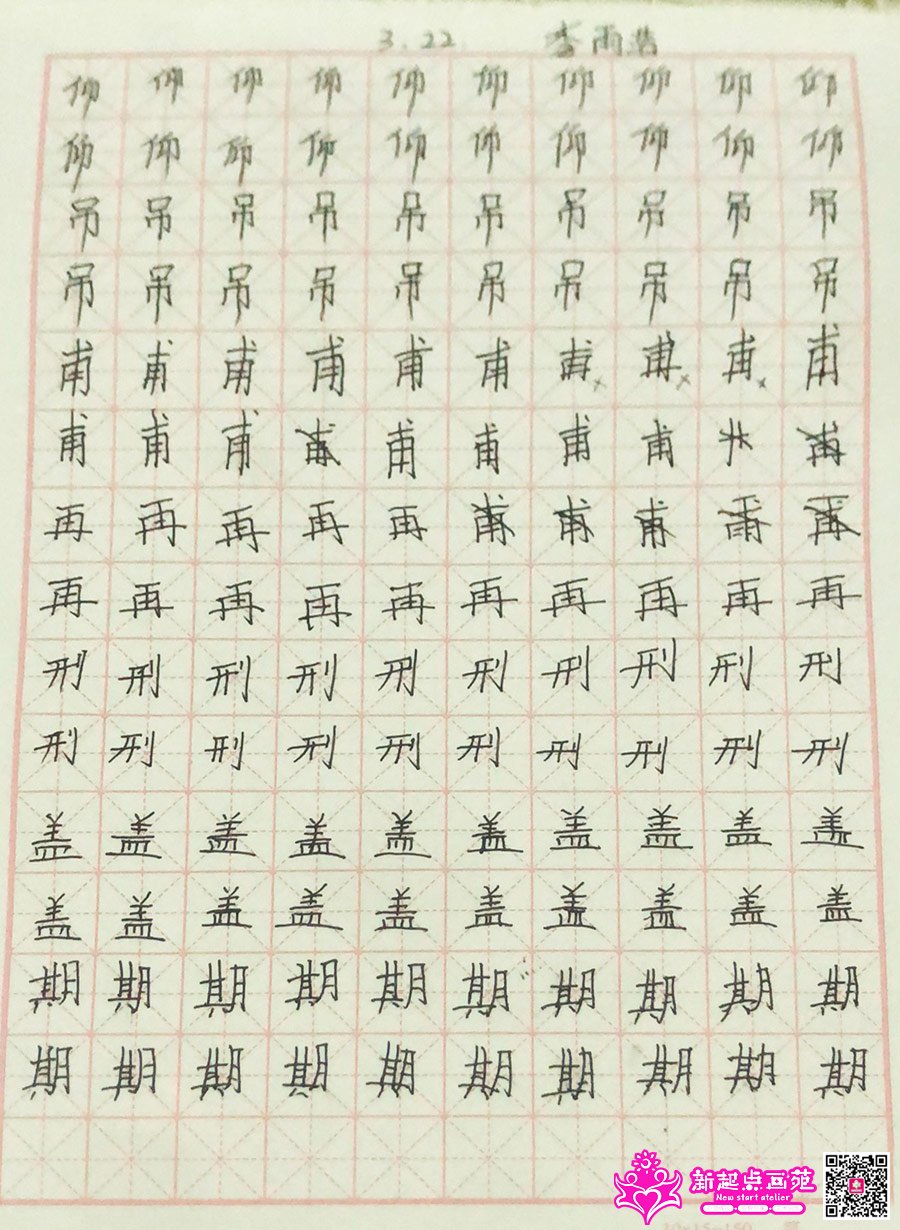 3.22 李雨浩
仰仰仰仰仰仰仰仰仰仰
仰仰仰仰仰仰仰仰仰仰
吊吊吊吊吊吊吊吊吊吊
吊吊吊吊吊吊吊吊吊吊
甫甫甫甫甫甫甫甫甫甫
甫甫甫甫甫甫甫甫
再再再再再甫甫甫
再再再再再再再再再再
刑刑刑刑刑刑刑刑刑刑
刑刑刑刑刑刑刑刑刑刑
盖盖盖盖盖盖盖盖盖盖
盖盖盖盖盖盖盖盖盖盖
期期期期期期期期期期
期期期期期期期期期期
新起点画苑
New start atelier